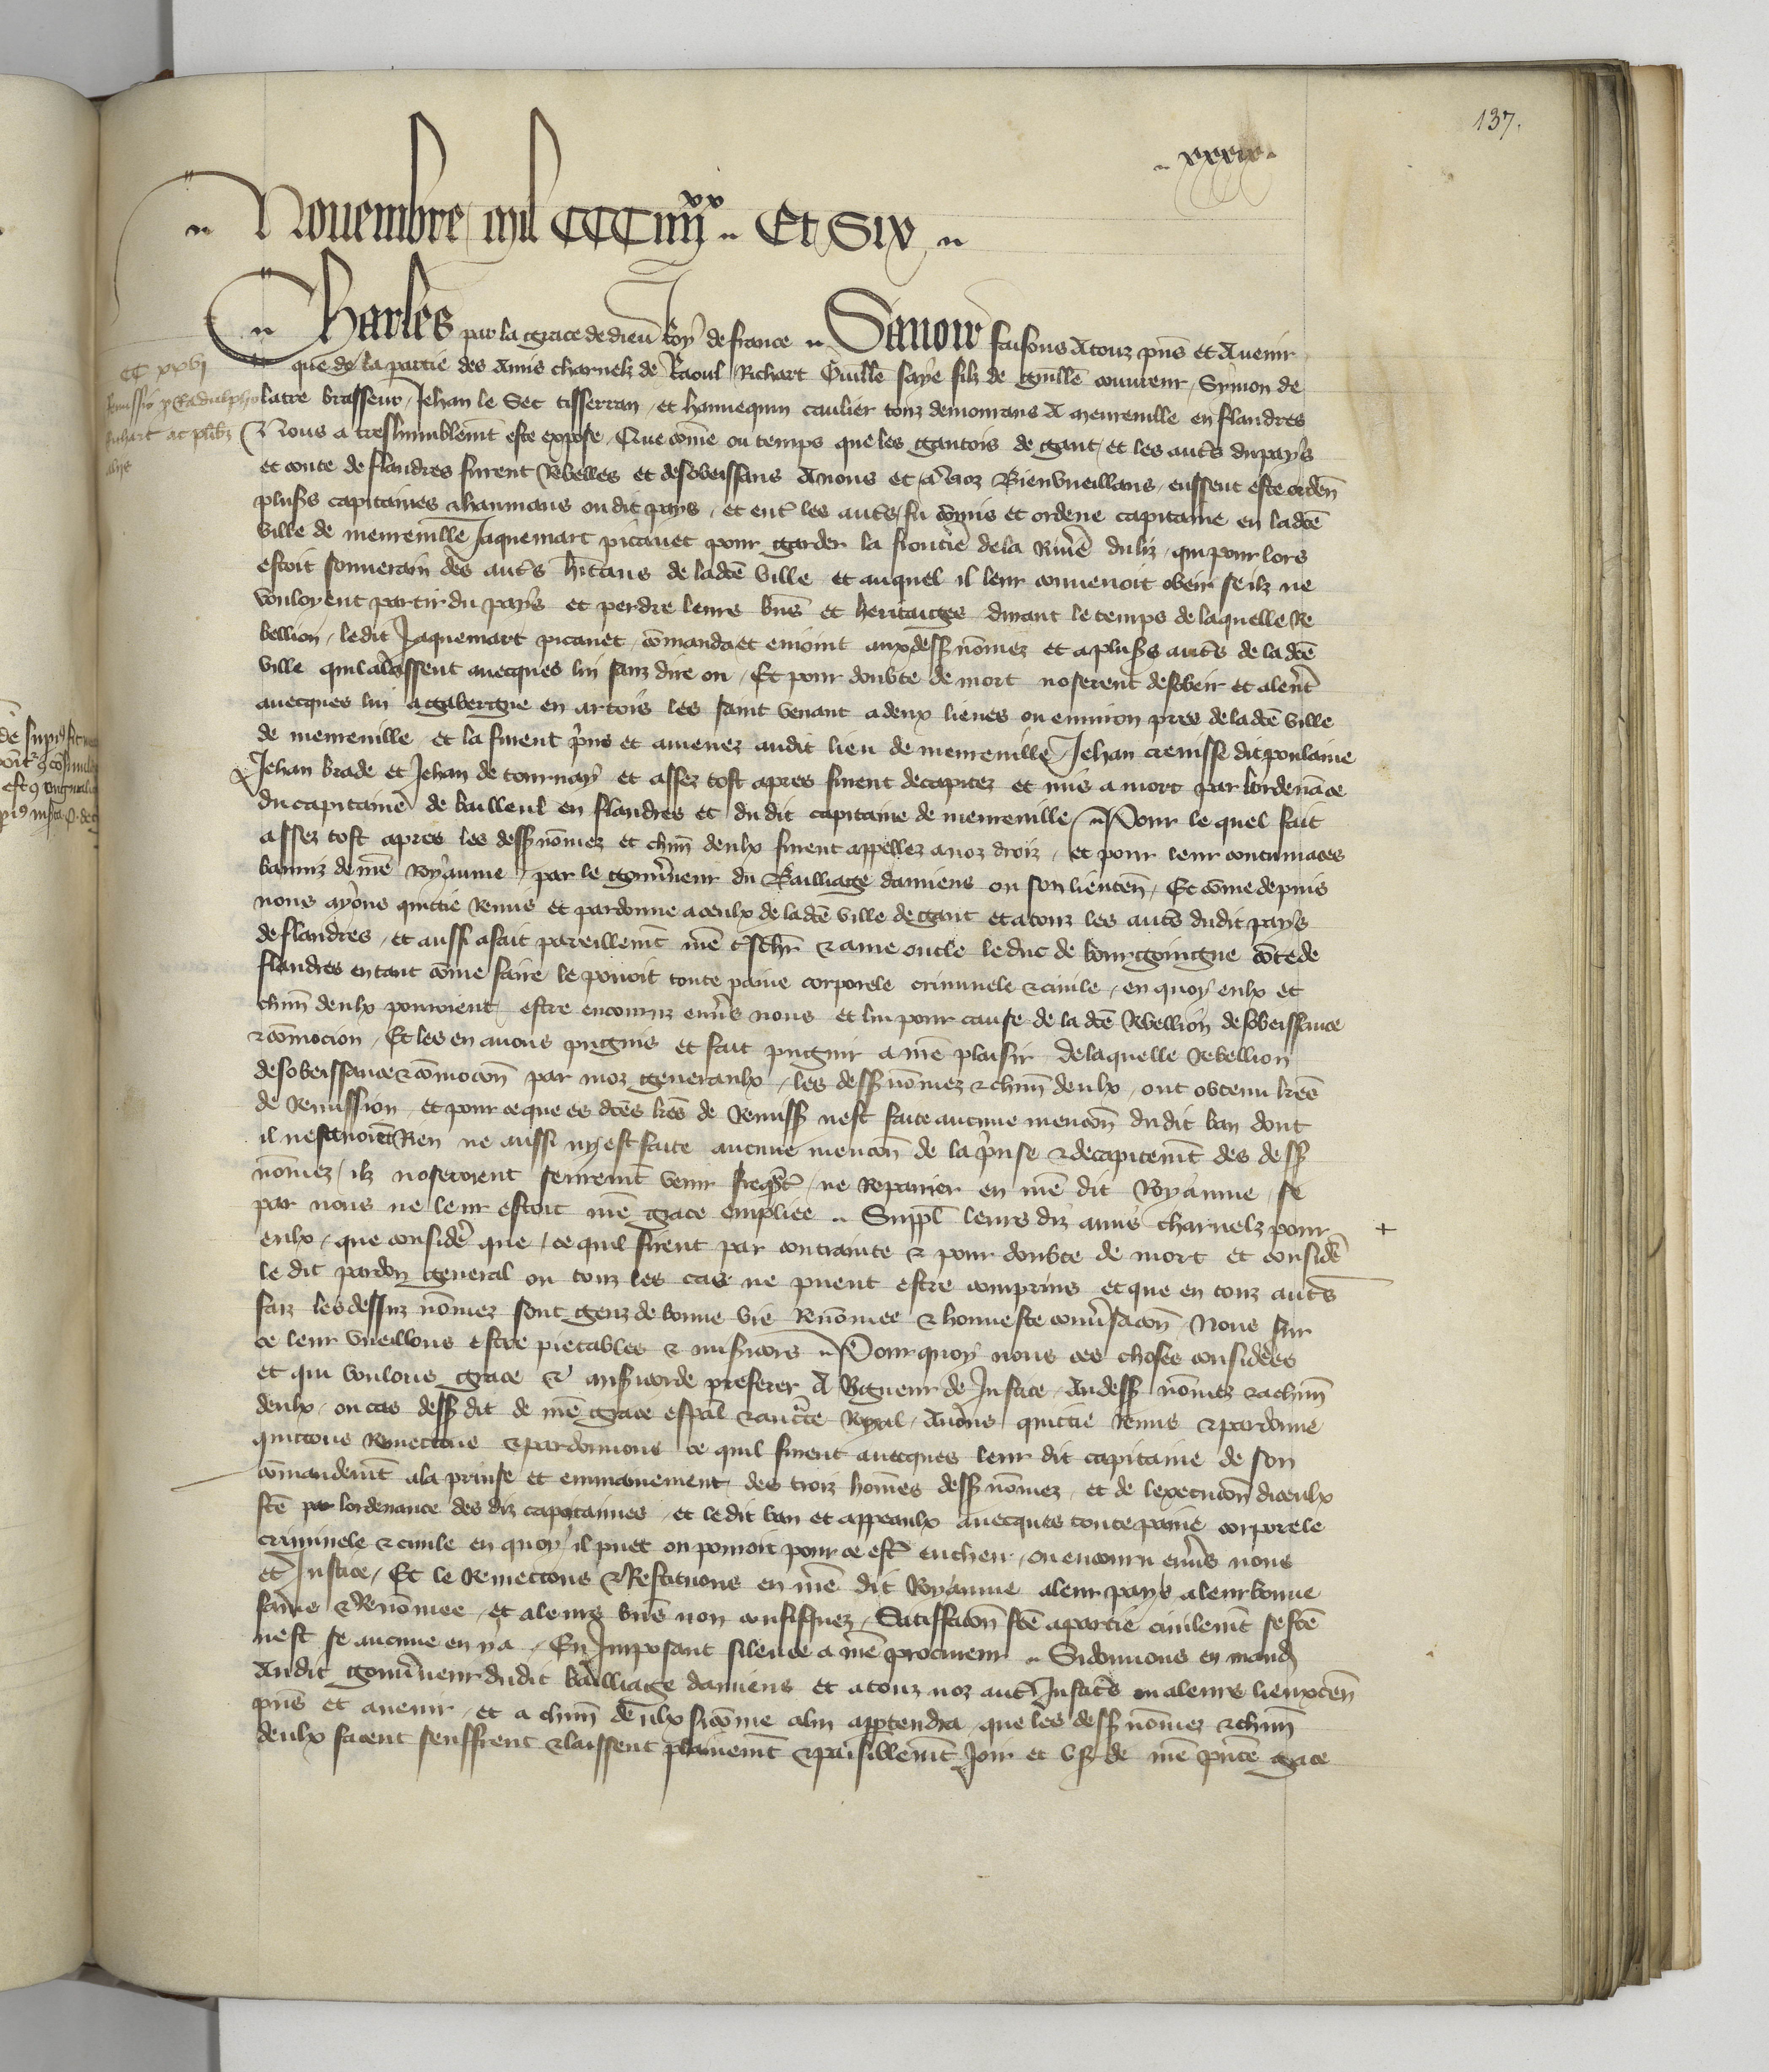 137.
xxxix
Nouembre mil CCC iiijxx Et Six
Charles par la grace de dieu Roy de france Sauoir faisons A touz pns et A uenir
CC xxvj
que de la partie des Amis charnelz de Raoul Richart Guille saye filz de guille couureur, Symon de
latre brasseur, Jehan le Sec tisserran, et hannequin caulier touz demourans A meureuille en flandres
Nous a treshumblemt este expose, Que come ou temps que les gantois de gant, et les autres du pays
et conte de flandres furent Rebelles et desobeissans A nous et a noz Bienvueillans, eussent este ordene
plusrs capitaines thaumans ou dit pays, et entre les autres fu comis et ordene capitaine en ladce
ville de meureuille Jaquemart picauet pour garder la frontiere de la Riuiere du liz, qui pour lors
estoit souuerain des autres hitans de ladce ville et auquel il leur conuenoit obeir se ilz ne
vouloyent partir du pays et perdre leurs bns et heritaiges, durant le temps de laquelle Re
bellion, ledit Jaquemart picauet, comanda et enioint aux dess nomez et a plusrs autres de la dce
ville quil alassent auecques lui sanz dire ou, Et pour doubte de mort noserent desobeir et alerent
auecques lui a gabergue en artois les saint venant a deux lieues ou enuiron pres de ladce ville
de meureuille et la furent prins et amenez audit lieu de meureuille, Jehan creuisse dit poulaine
Jehan brade et Jehan de tournay et assez tost apres furent decapitez et mis a mort par lordenace
du capitaine de bailleul en flandres et du dit capitaine de meureuille, Pour le quel fait
assez tost apres les dess nomez et chun deulx furent appellez a noz droiz, et pour leur contumaces
banniz de nre Royaume, par le gouuerneur du Bailliage damiens ou son lieuten, Et come depuis
nous ayons quittie Remis et pardonne a ceulx de ladce ville de gant et a touz les autres du dit pays
de flandres, et aussi a fait pareillemt nre treschr & ame oncle le duc de bourgoingne conte de
flandres en tant come faire le pouoit toute paine corporele criminele & ciuile, en quoy eulx et
chun deulx pourroient estre encouruz enuers nous et lui pour cause de la dce Rebellion desobeissance
& comocion, Et les en auons pugnis et fait pugnir a nre plaisir de laquelle Rebellion
desobeissance & comocon par noz generaulx, les dess nomez & chun deulx, ont obtenu lres
de Remission, et pour ce que es dces lres de Remiss nest faite aucune mencon du dit ban dont
il ne sauoient Rien ne aussi ny est faite aucune mencon de la prinse & decapitemt des dess
nomez, ilz noseroient seuremt venir ne Repairier en nre dit Royaume, se
par nous ne leur estoit nre grace empliee, Suppl leurs diz amis charnelz pour
eulx, que considere que, ce quil firent par contrainte & pour doubte de mort et considere
le dit pardon general ou touz les cas ne puent estre comprins et que en touz autres
faiz les dessuz nomez sont genz de bonne vie Renomee & honneste conuersacon, Nous sur
ce leur vueillons estre pietables & misericors, Pour quoy nous ces choses considerees
et qui voulons grace & misericorde preferer A Rigueur de Justice, Aux dess nomez & a chun
deulx, ou cas dess dit de nre grace espal & auctorite Royal, Auons quittie Remis & pardonne
quittons Remettons & pardonnons ce quil firent auecques leur dit capitaine de son
comandemt a la prinse et emmainement des troiz homes dess nomez, et de lexecucon diceulx
fce par lordenance des diz capitaines, et le dit ban et appeaulx auecques toute paine corporele
criminele & ciuile en quoy il puet ou pourroit pour ce estre encheu, ou encouru enuers nous
et Justice, Et le Remettons & Restituons en nre dit Royaume a leur pays a leur bonne
fame & Renomee, et a leurs bns non confisquez, Satisfacon fce a partie ciuilemt se fce
nest se aucune en y a, En Imposant silence a nre procureur, Si donnons en mand
Au dit gouuerneur du dit bailliage damiens et a touz noz autres Justices ou a leurs lieuxten
pns et auenir, et a chun deulx sicome a lui appartendra, que les dess nomez & chun
deulx facent seuffrent & laissent plainemt & paisiblemt Joir et vser de nre pnte grace